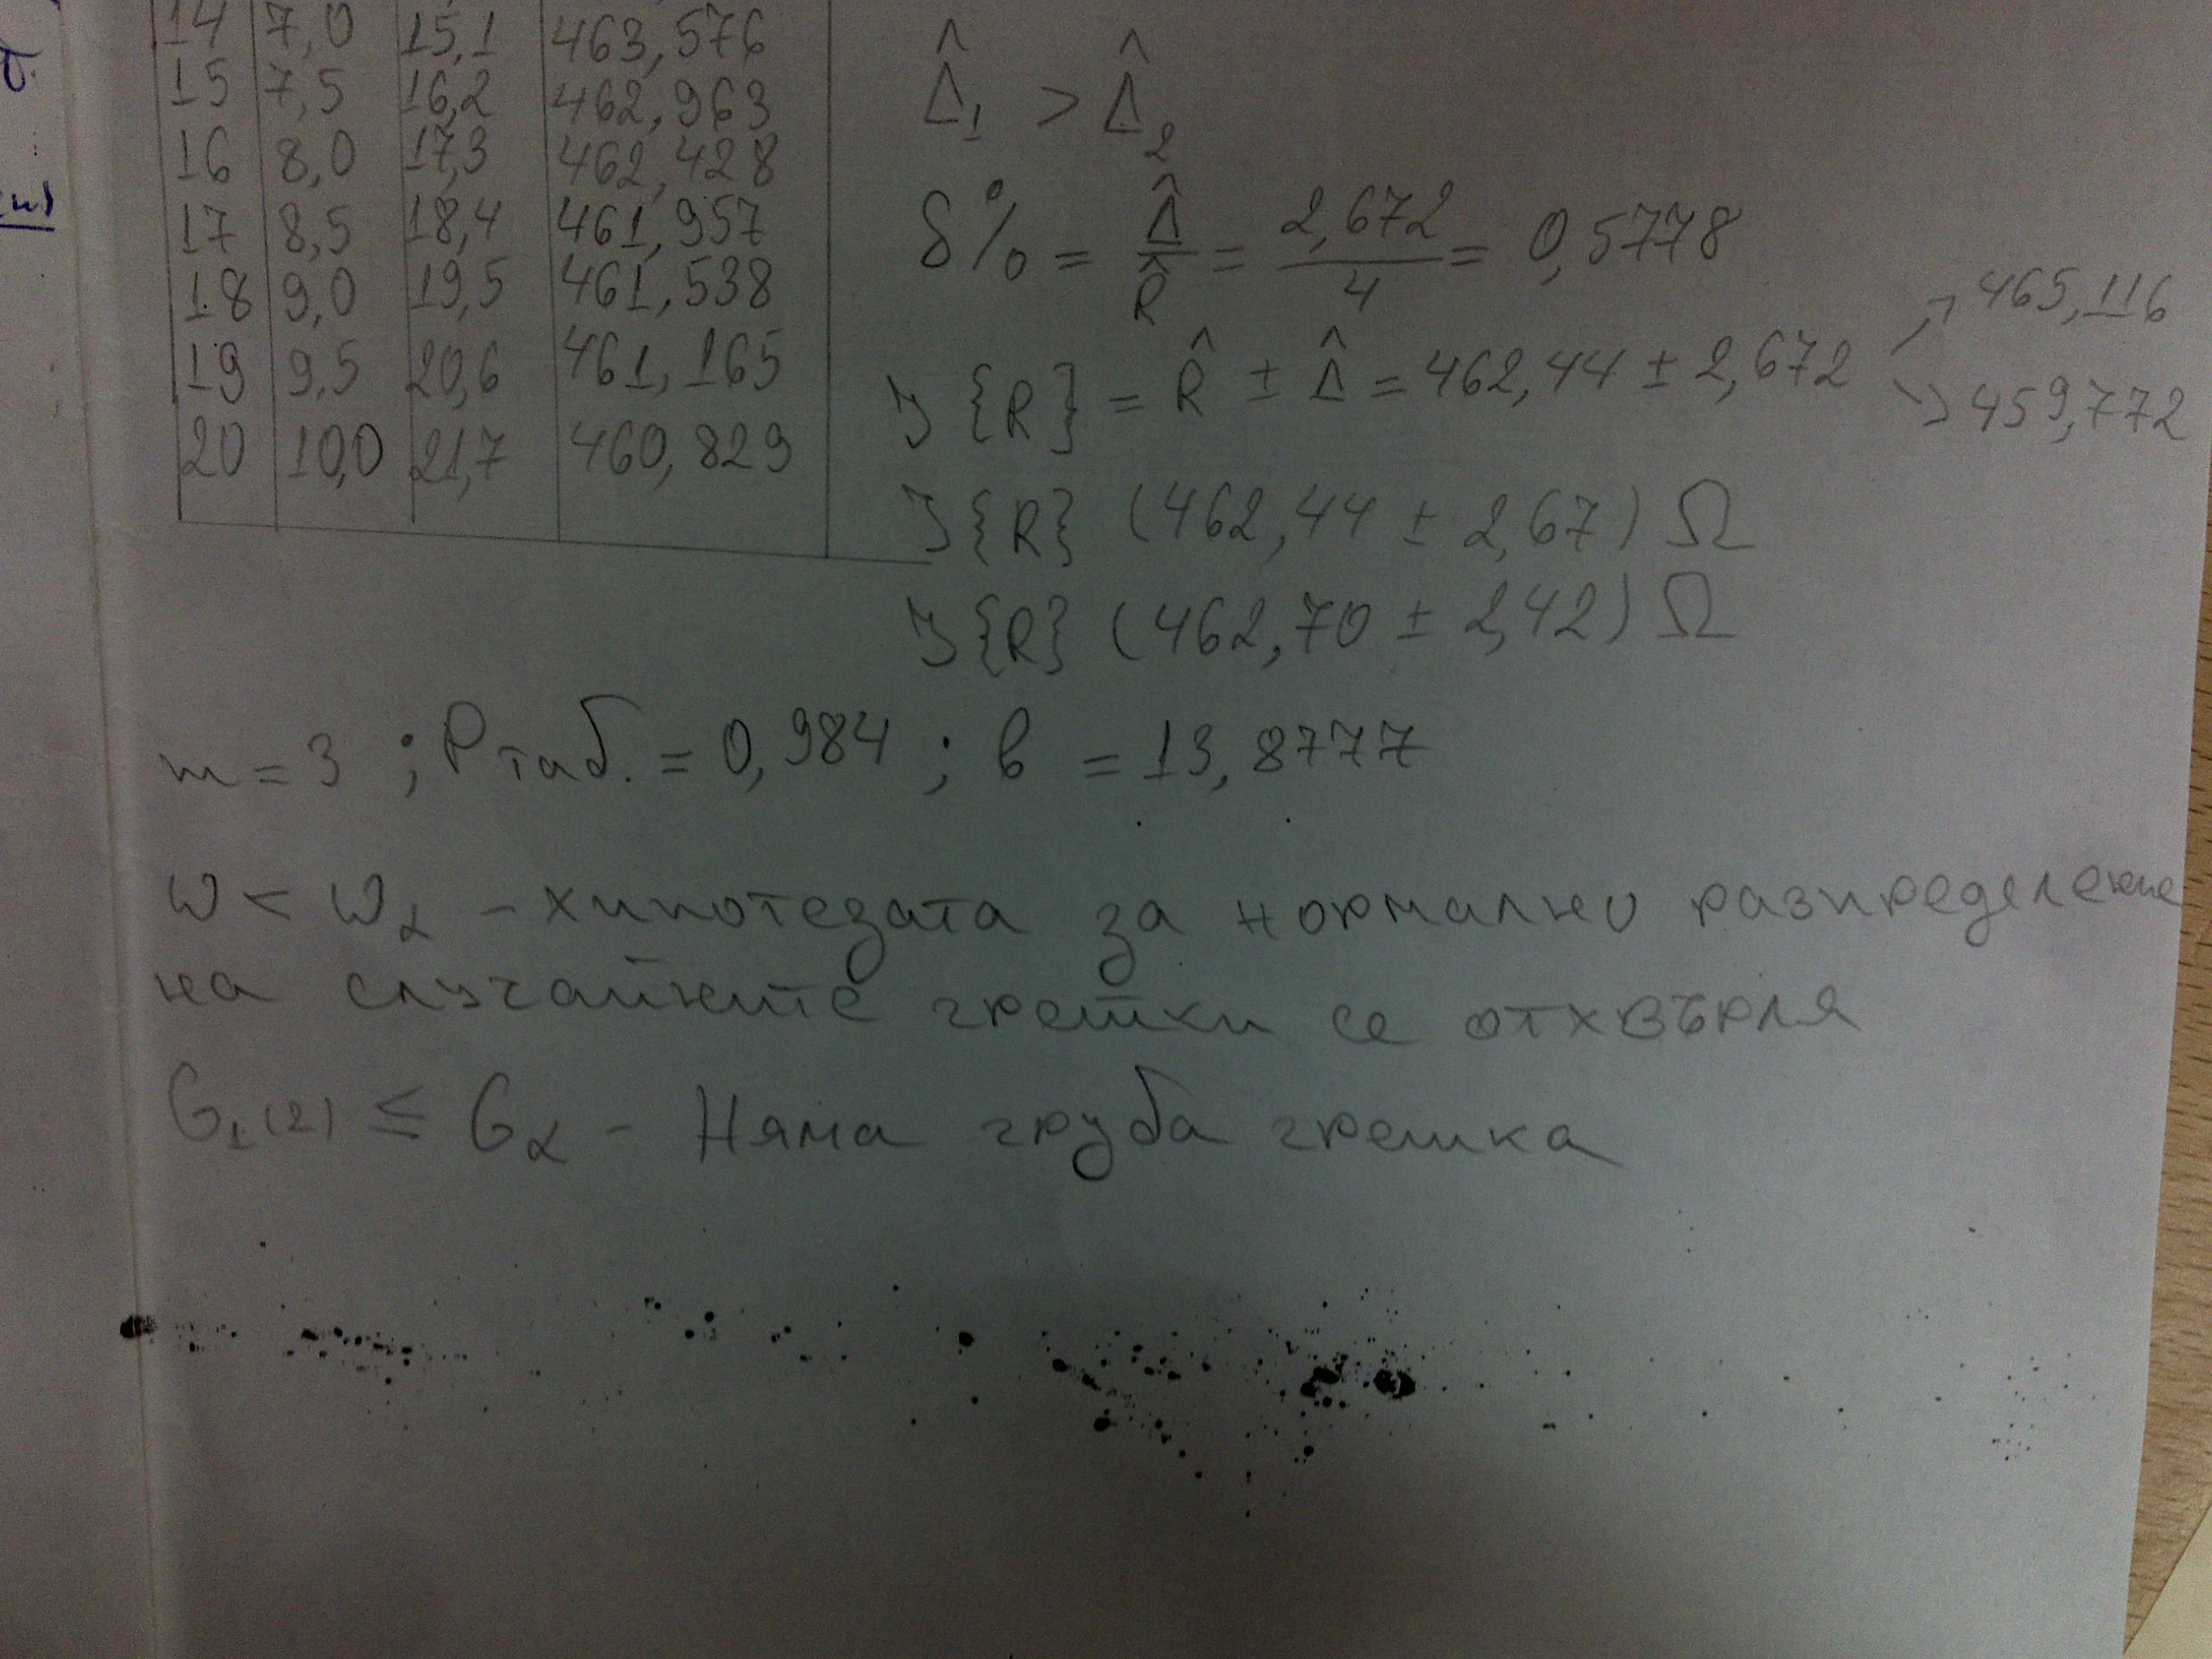 14 7,0 15,1 463,576
15 7,5 16,2 462,963
16 8,0 17,3 462,428
17 8,5 18,4 461,957
18 9,0 19,5 461,538
19 9,5 20,6 461,165
20 10,0 21,7 460,829
Δ̂₁ > Δ̂₂
δ% = Δ̂/R̂ = 2,672/4 = 0,5778
J{R} = R̂ ± Δ̂ = 462,44 ± 2,672
465,116
459,772
J{R} (462,44 ± 2,67) Ω
J{R} (462,70 ± 2,42) Ω
m = 3 ; Pтаб. = 0,984 ; в = 13,8777
ω < ωα - хипотезата за нормално разпределение
на случайните грешки се отхвърля
G₁(2) ≤ Gα - Няма груба грешка